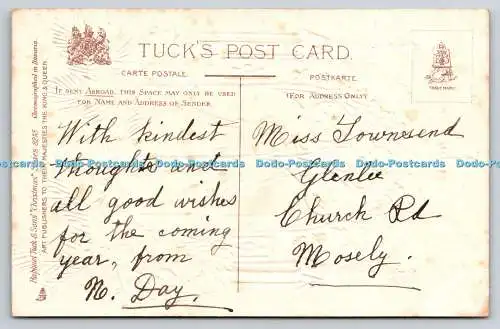 TUCK'S POST CARD.
CARTE POSTALE
POSTKARTE
IF SENT ABROAD, THIS SPACE MAY ONLY BE USED
FOR NAME AND ADDRESS OF SENDER.
(FOR ADDRESS ONLY)
TRADE MARK
Raphael Tuck & Sons' "Christmas" Series 8248
Chromographed in Bavaria
ART PUBLISHERS TO THEIR MAJESTIES THE KING & QUEEN.
With kindest
thoughts and
all good wishes
for the coming
year, from
N. Day.
Miss Townesend
Glenlee
Church Rd
Mosely.
Dodo-Postcards Dodo-Postcards Dodo-Postcards Dodo-Postcards Dodo-Postcards